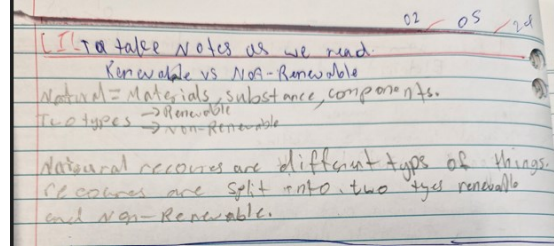 02 / 05 / 24
LI: To take Notes as we read.
Renewable vs Non-Renewable
Natural = Materials, substance, components.
Two types → Renewable
→ Non-Renewable
Natural recoures are different typs of things.
recoures are split into two tyes renewable
and Non-Renewable.